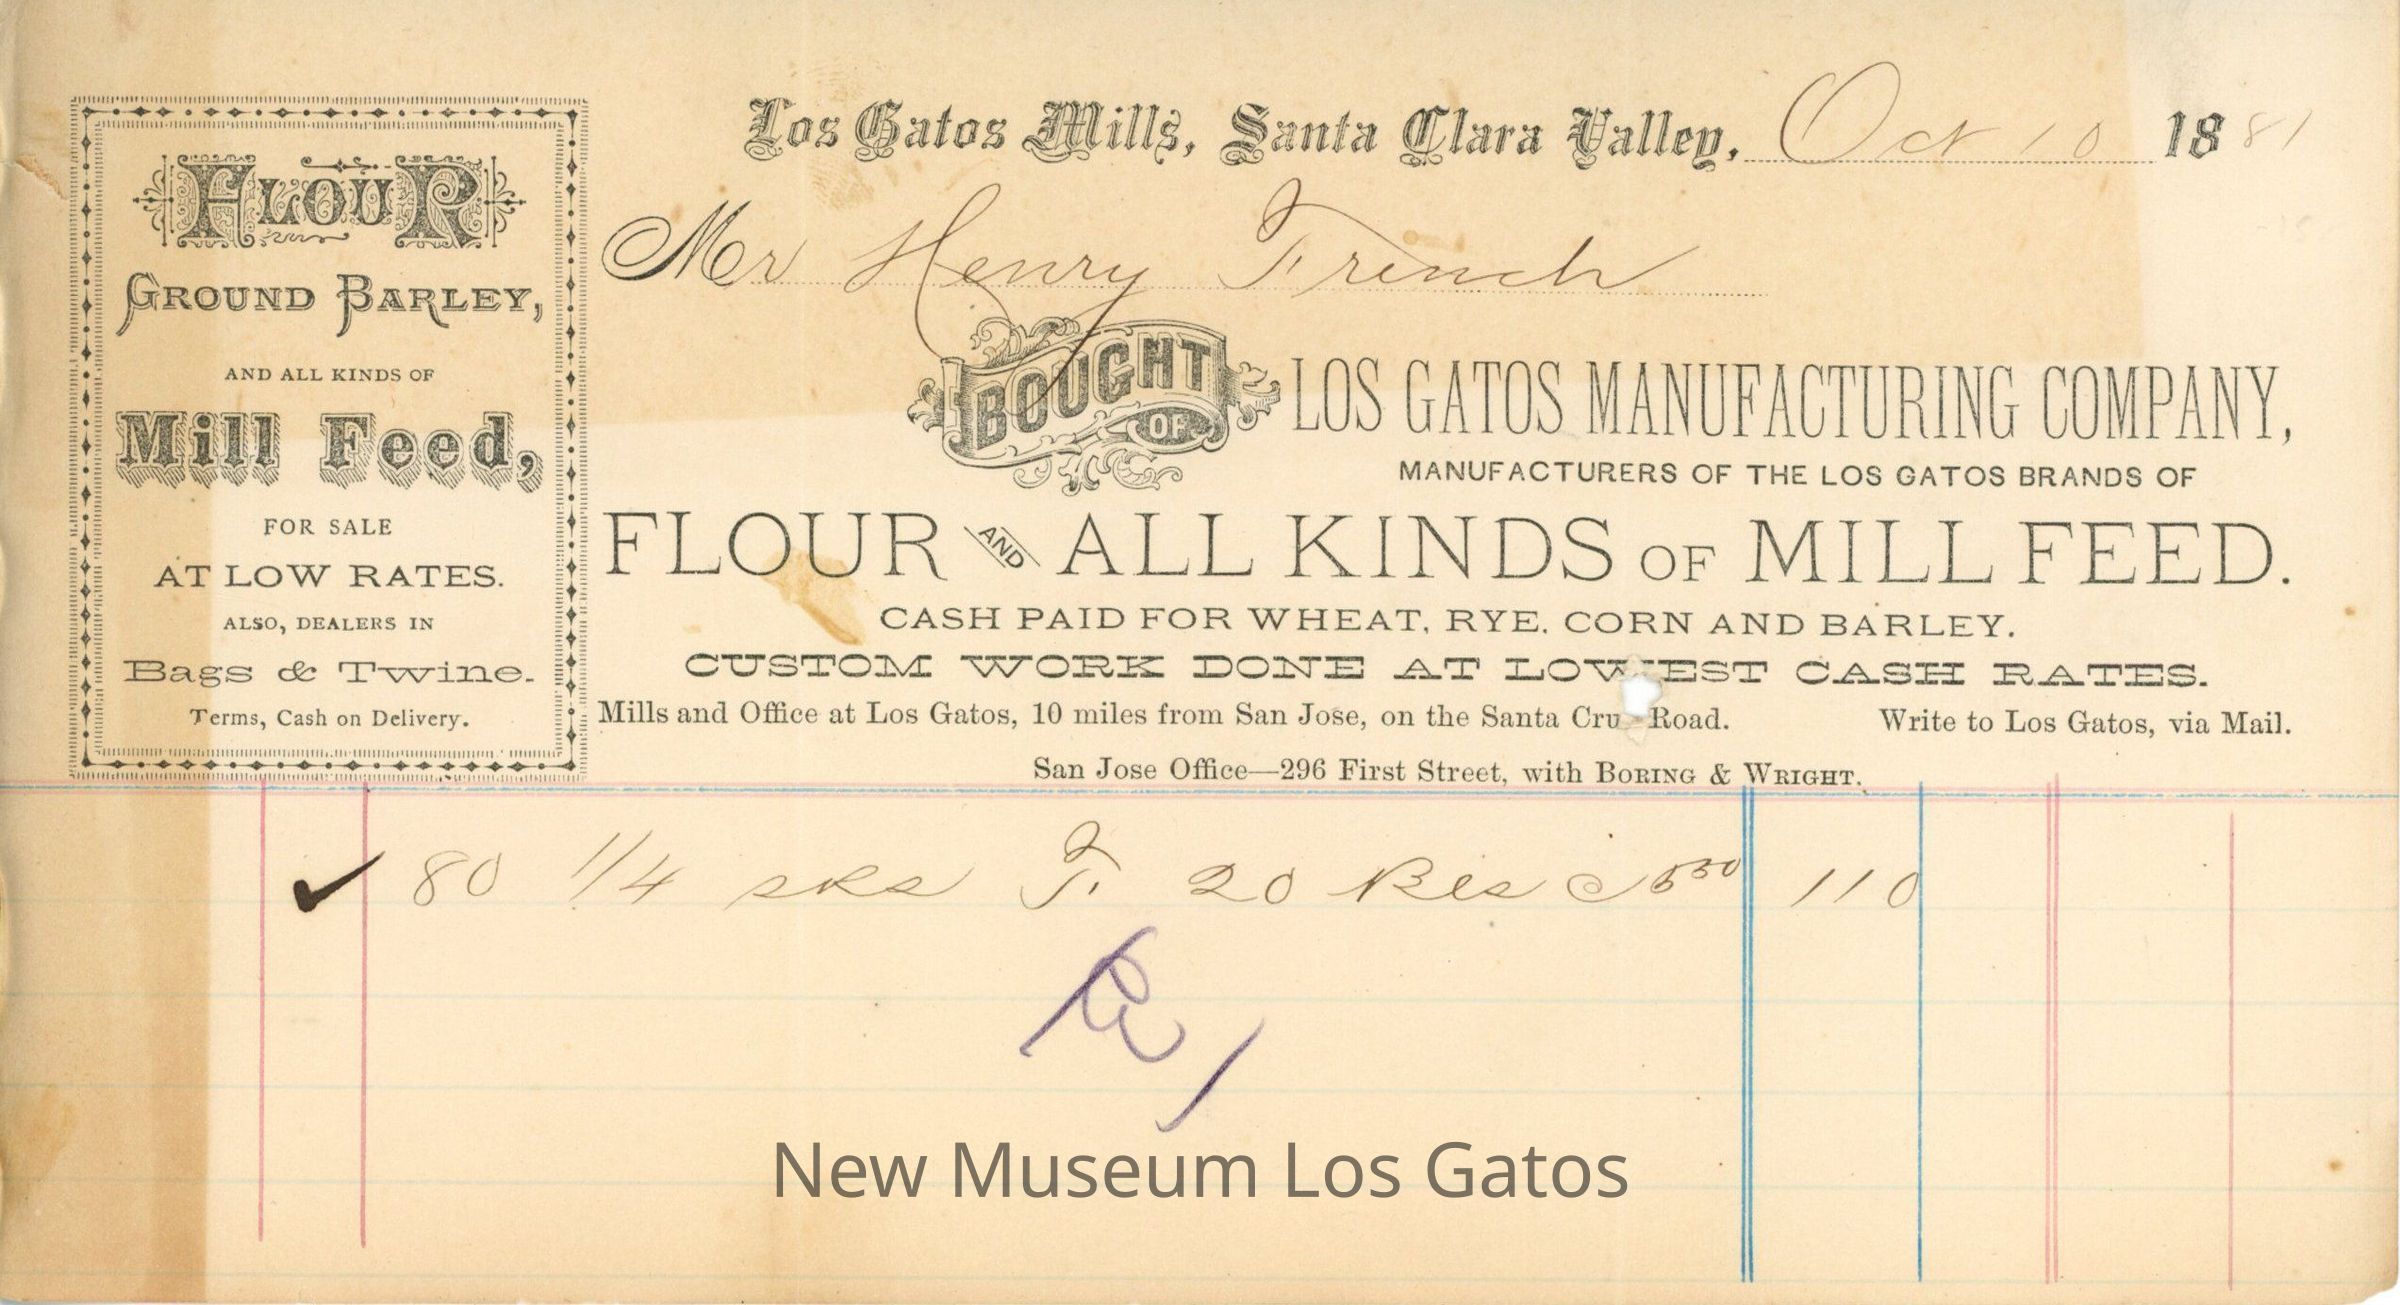 FLOUR
GROUND BARLEY,
AND ALL KINDS OF
Mill Feed,
FOR SALE
AT LOW RATES.
ALSO, DEALERS IN
Bags & Twine.
Terms, Cash on Delivery.
Los Gatos Mills, Santa Clara Valley, Oct 10 1881
Mr Henry French
BOUGHT OF LOS GATOS MANUFACTURING COMPANY,
MANUFACTURERS OF THE LOS GATOS BRANDS OF
FLOUR AND ALL KINDS OF MILL FEED.
CASH PAID FOR WHEAT, RYE, CORN AND BARLEY.
CUSTOM WORK DONE AT LOWEST CASH RATES.
Mills and Office at Los Gatos, 10 miles from San Jose, on the Santa Cru Road. Write to Los Gatos, via Mail.
San Jose Office—296 First Street, with BORING & WRIGHT.
✓ 80 1/4 sks F. 20 Bls @ 5 50 110
New Museum Los Gatos